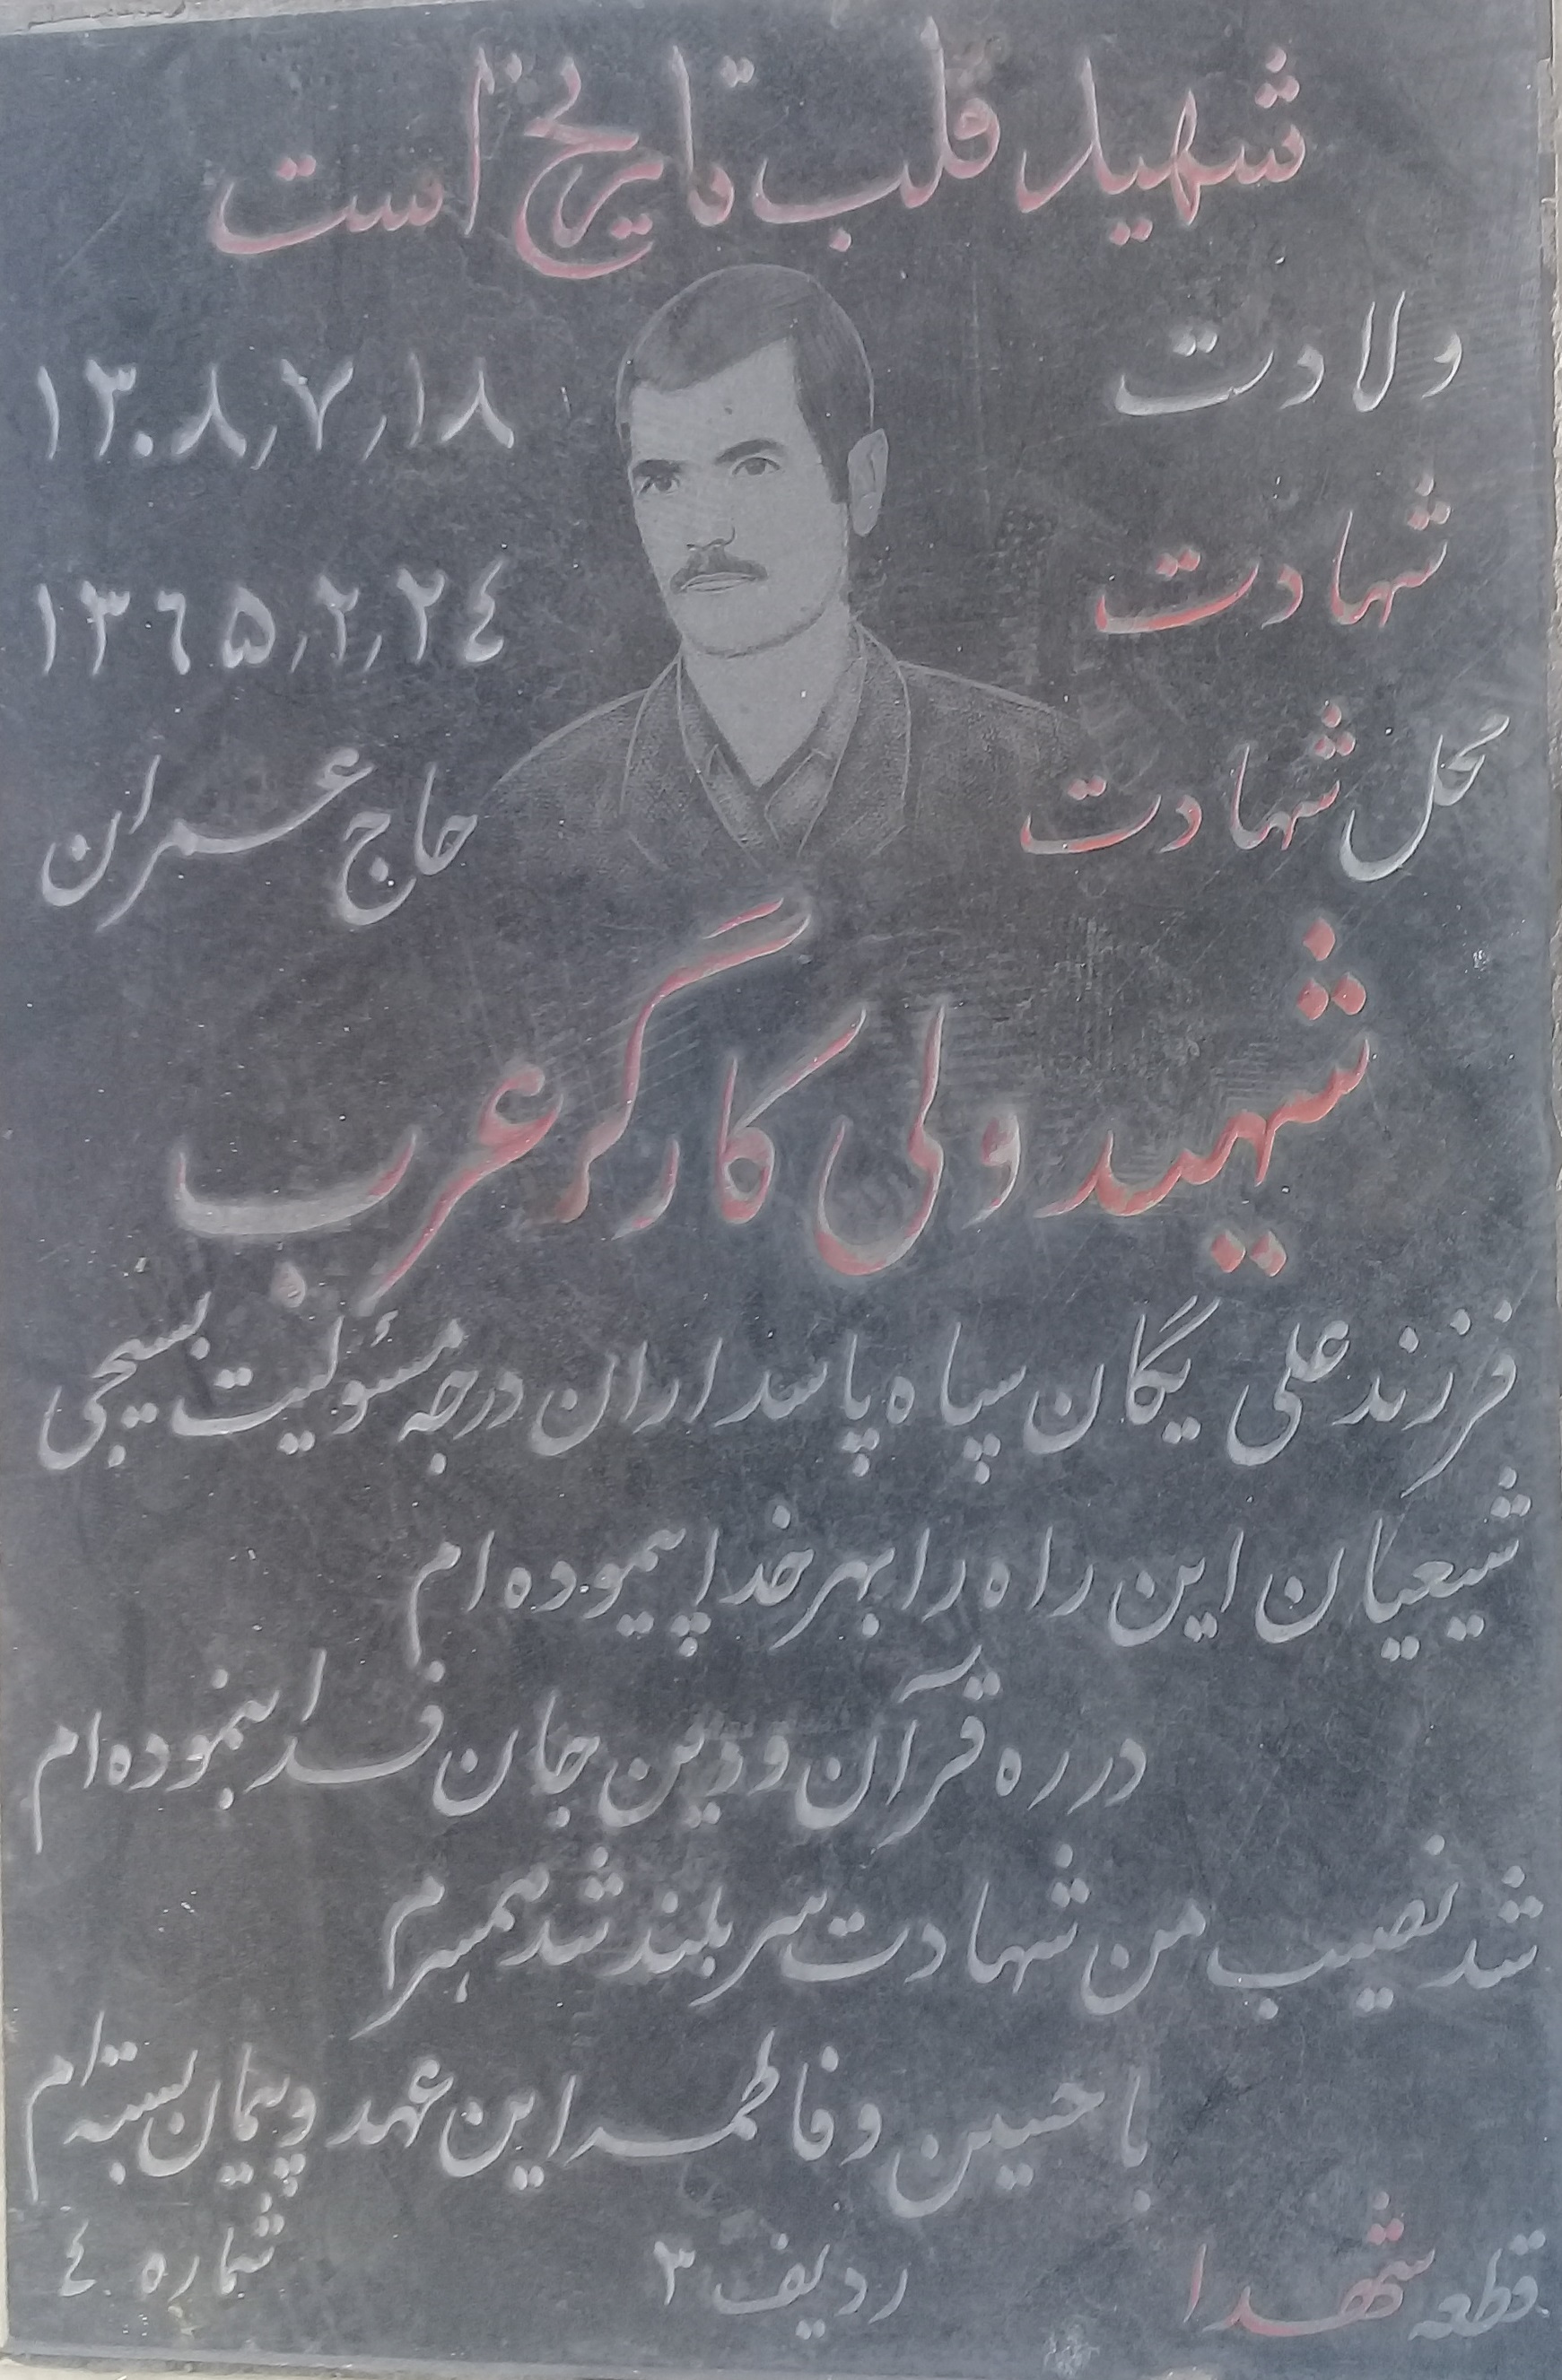 شهید قلب تاریخ است
ولادت ۱۳۰۸٫۷٫۱۸
شهادت ۱۳۶۵٫۲٫۲۴
محل شهادت حاج عمران
شهید ولی کارگر عرب
فرزند علی یگان سپاه پاسداران درجه مسئولیت بسیجی
شیعیان این راه را بهر خدا پیموده ام
در ره قرآن و دین جان فدا بنموده ام
شد نصیب من شهادت سربلند شد همسرم
با حسین و فاطمه این عهد و پیمان بسته ام
قطعه شهدا ردیف ۳ شماره ۴